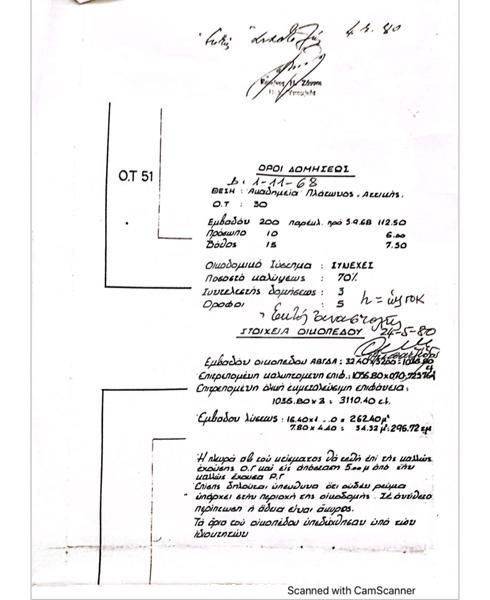 4.2.80
Ο.Τ 51
ΟΡΟΙ ΔΟΜΗΣΕΩΣ
1-11-68
ΘΕΣΗ : Ακαδημεία Πλάτωνος, Αττικής.
Ο.Τ : 30
Εμβαδόν 200 παρεκλ. πρό 5.9.68 112.50
Πρόσωπο 10 6.00
Βάθος 15 7.50
Οικοδομικό Σύστημα : ΣΥΝΕΧΕΣ
Ποσοστό καλύψεως : 70%
Συντελεστής δομήσεως : 3
Όροφοι : 5 h =
Εκτός 24-5-80
ΣΤΟΙΧΕΙΑ ΟΙΚΟΠΕΔΟΥ
Εμβαδόν οικοπέδου ΑΒΓΔΑ : 32.40 1036.80
Επιτρεπομένη καλυπτομένη επιφ. : 1036.80
Επιτρεπομένη ολική εκμεταλεύσιμη επιφάνεια :
1036.80 x 3 : 3110.40
Εμβαδόν λύσεως : 16.40 = 262.40 μ²
7.80 x 4.40 : 34.32 μ² : 296.72
Η πλευρά του κτίσματος θά τεθή επί της καλώς
εχούσης Ο.Γ καί εις απόσταση 5.00 μ από την
καλώς έχουσα Ρ.Γ
Επίσης δηλούται υπευθυνα ότι ουδέν ρεύμα
υπάρχει στην περιοχή της οικοδομής. Σε αντίθετο
περίπτωση η άδεια είναι άκυρος.
Τα όρια του οικοπέδου υπεδείχθησαν υπό των
ιδιοκτητών
Scanned with CamScanner